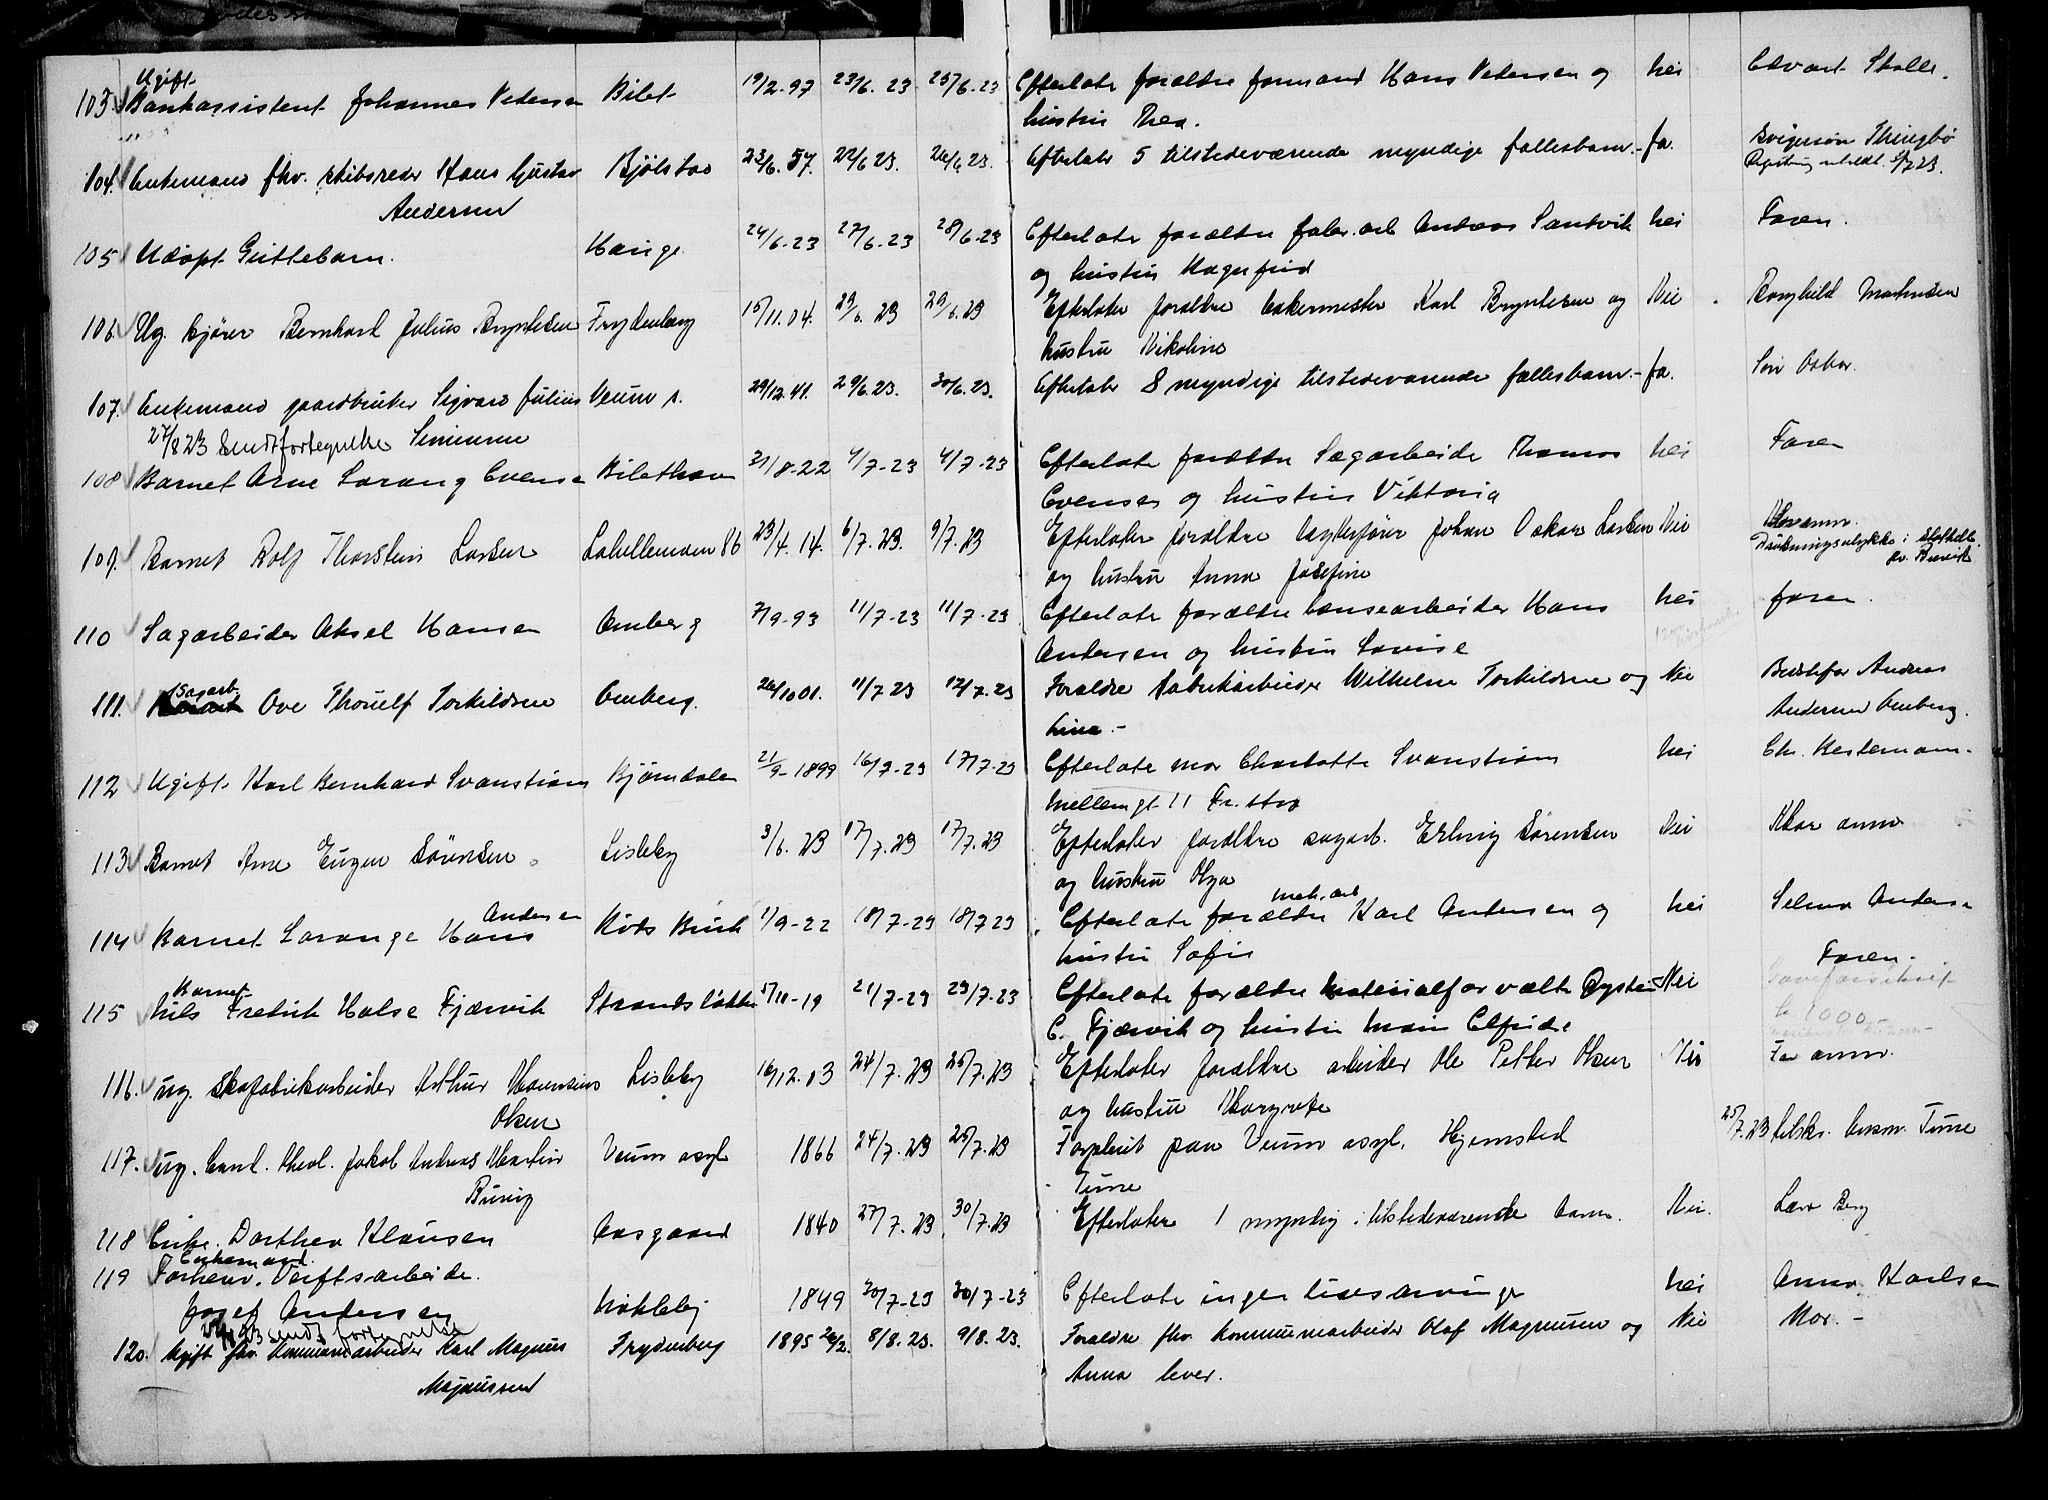 103. Ugift
Bankassistent Johannes Pedersen Bilet 19/2-97 23/6.23 25/6.23 Efterlate forældre formand Hans Pedersen og nei Edvart Skolle.
hustru Thea.
104. Enkemand fhv. skibsreder Hans Gustav Kjölstad 23/6.57. 22/6 23. 26/6 23. Efterlater 5 tilstedeværende myndige fællesbarn. - Ja.
Andersen
105 Udöpt Guttebarn. Hauge 24/6-23 27/6-23 28/6-23 Efterlate forældre fabr. arb Andreas Sandvik nei Faren.
og hustru Magnfrid
106. Ug. kjører Bernhart Julius Bryntesen Frydenberg 15/11.04. 29/6.23 29/6.23 Efterlater forældre bakermester Karl Bryntesen og Nei Borghild Martinsen
hustru Nikoline
107. Enkemand gaardbruker Sigvard Julius Veum s. 29/12.41. 29/6.23. 30/6.23. Efterlater 8 myndige tilstedeværende fællesbarn. - Ja. Sön Oskar.
27/8 23 Sendt fortegnelse Simensen
108 Barnet Arne Lorang Evensen Bilethavn 31/8-22 4/7-23 4/7-23 Efterlate forældre Sagarbeider Thomas nei Faren
Evensen og hustru Viktoria
109. Barnet Rolf Thorstein Larsen Lahellemoen 86 23/4.14. 6/7.23. 9/7.23 Efterlater forældre Johan Oskar Larsen Nei
og hustru Anna Josefine Drukningsulykke i
110 Sagarbeider Aksel Hansen Omberg 7/9-93 11/7-23 11/7-23 Efterlate forældre lensearbeider Hans nei faren.
Andersen og hustru Lovise
111. Sagarb. Ove Thorulf Torkildsen Omberg. 26/10 01. 11/7 23 12/7.23 Forældre fabrikarbeider Wilhelm Torkildsen og Nei Bedstefar Andreas
Lina. - Andersen Omberg.
112 Ugift Karl Bernhard Svanström Bjørndalen 21/9-1899 16/7-23 17/7-23 Efterlate mor Charlotte Svanström nei Chr. Kestemann.
Mellemgt 11 Fr. stad
113. Barnet Arne Eugen Sörensen. Lisleby 3/6.23 17/7.23 17/7.23 Efterlater forældre sagarb. Erling Sörensen Nei Mor anm
og hustru Olga
114 Barnet Lorang Hans Andersen 1/9-22 18/7-23 18/7 23 Efterlate forældre mek. arb Karl Andersen og nei Selma Andersen
hustru Sofie
115 Barnet
Nils Fredrik Halse Fjærvik 5/11-19 21/7-23 23/7-23 Efterlate forældre materialforvalter Øystein Nei Faren.
C. Fjærvik og hustru Elfride
116. ug. Skofabrikarbeider Arthur Olsen Lisleby 16/12.03 24/7.23 25/7.23 Efterlater forældre arbeider Ole Petter Olsen Nei Far anm.
og hustru Margrete
117. ug. cand. theol. Jakob Andreas Martin Veum asyl 1866 24/7.23 25/7.23 Forpleiet paa Veum asyl. Hjemsted 25/7.23 Tune
Tune
118 Enke. Dorthea Klausen Aasgaard 1840 27/7.23 30/7.23 Efterlater 1 myndig tilstedeværende barn. Nei. Lars Berg
119 Enkemand
Forhenv. Verftsarbeide.
Josef Andersen Nøkleby 1849 30/7-23 30/7-23 Efterlate ingen livsarvinger nei Anna Karlsen
sendt fortegnelse
120. Ugift fhv. Kommunearbeider Karl Magnus Frydenberg 1895 26/2. 8/8.23. 9/8.23. Forældre fhv. kommunearbeider Olaf Magnussen og Nei Mor. -
Magnussen Anna lever.